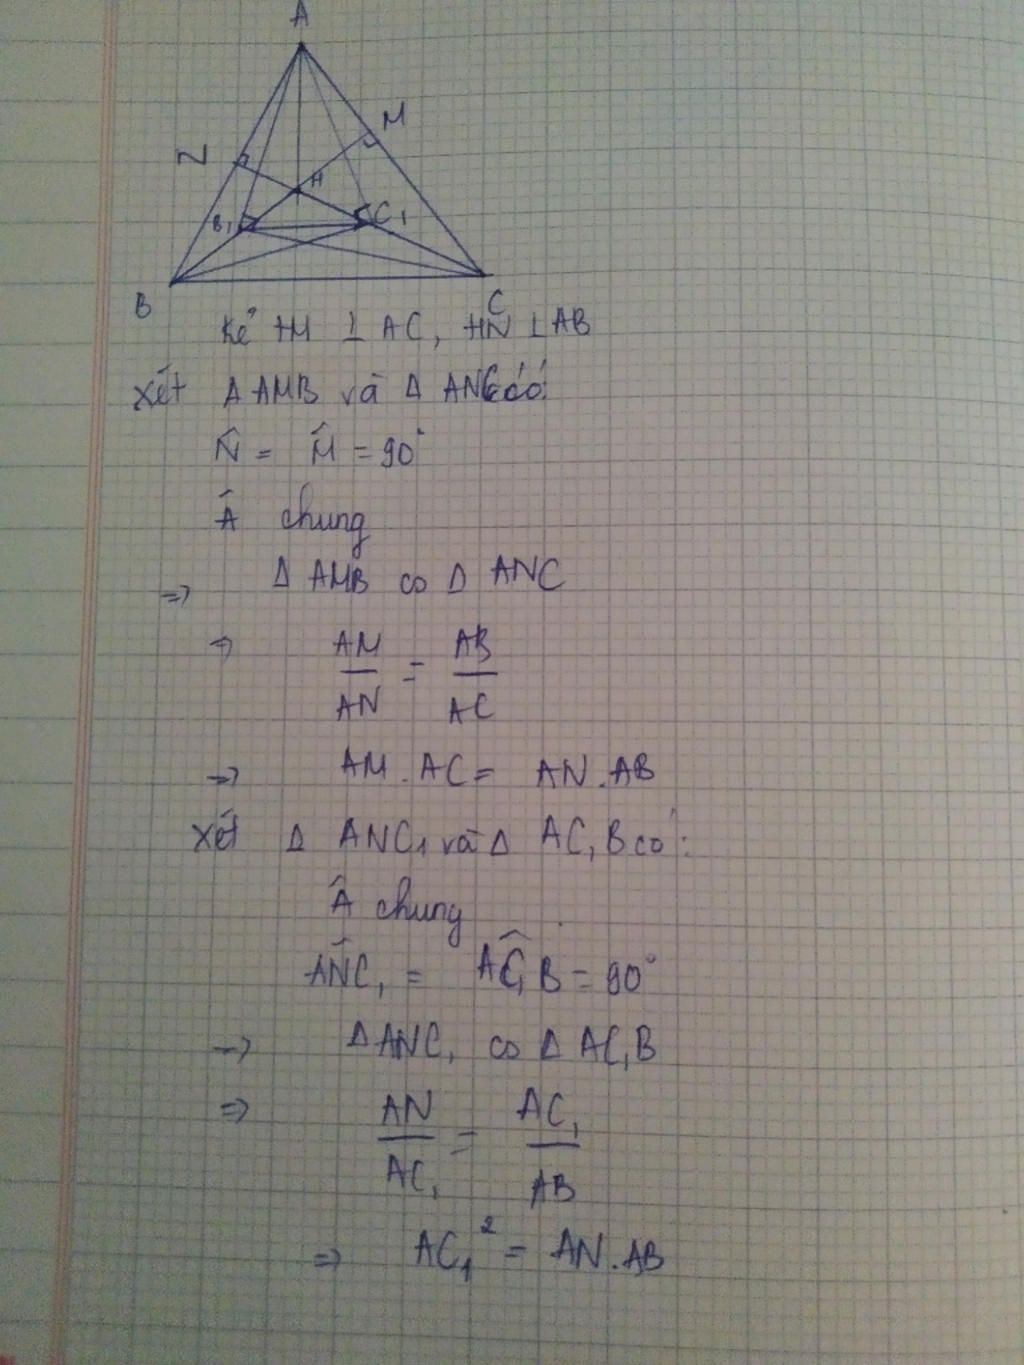 A
M
N
H
B₁
C₁
B
C
Kẻ HM ⊥ AC, HN ⊥ AB
Xét Δ AMB và Δ ANC có:
N̂ = M̂ = 90°
Â chung
=> Δ AMB ∽ Δ ANC
=> AM/AN = AB/AC
=> AM . AC = AN . AB
Xét Δ ANC₁ và Δ AC₁B có:
Â chung
ANC₁ = AC₁B = 90°
=> Δ ANC₁ ∽ Δ AC₁B
=> AN/AC₁ = AC₁/AB
=> AC₁² = AN . AB